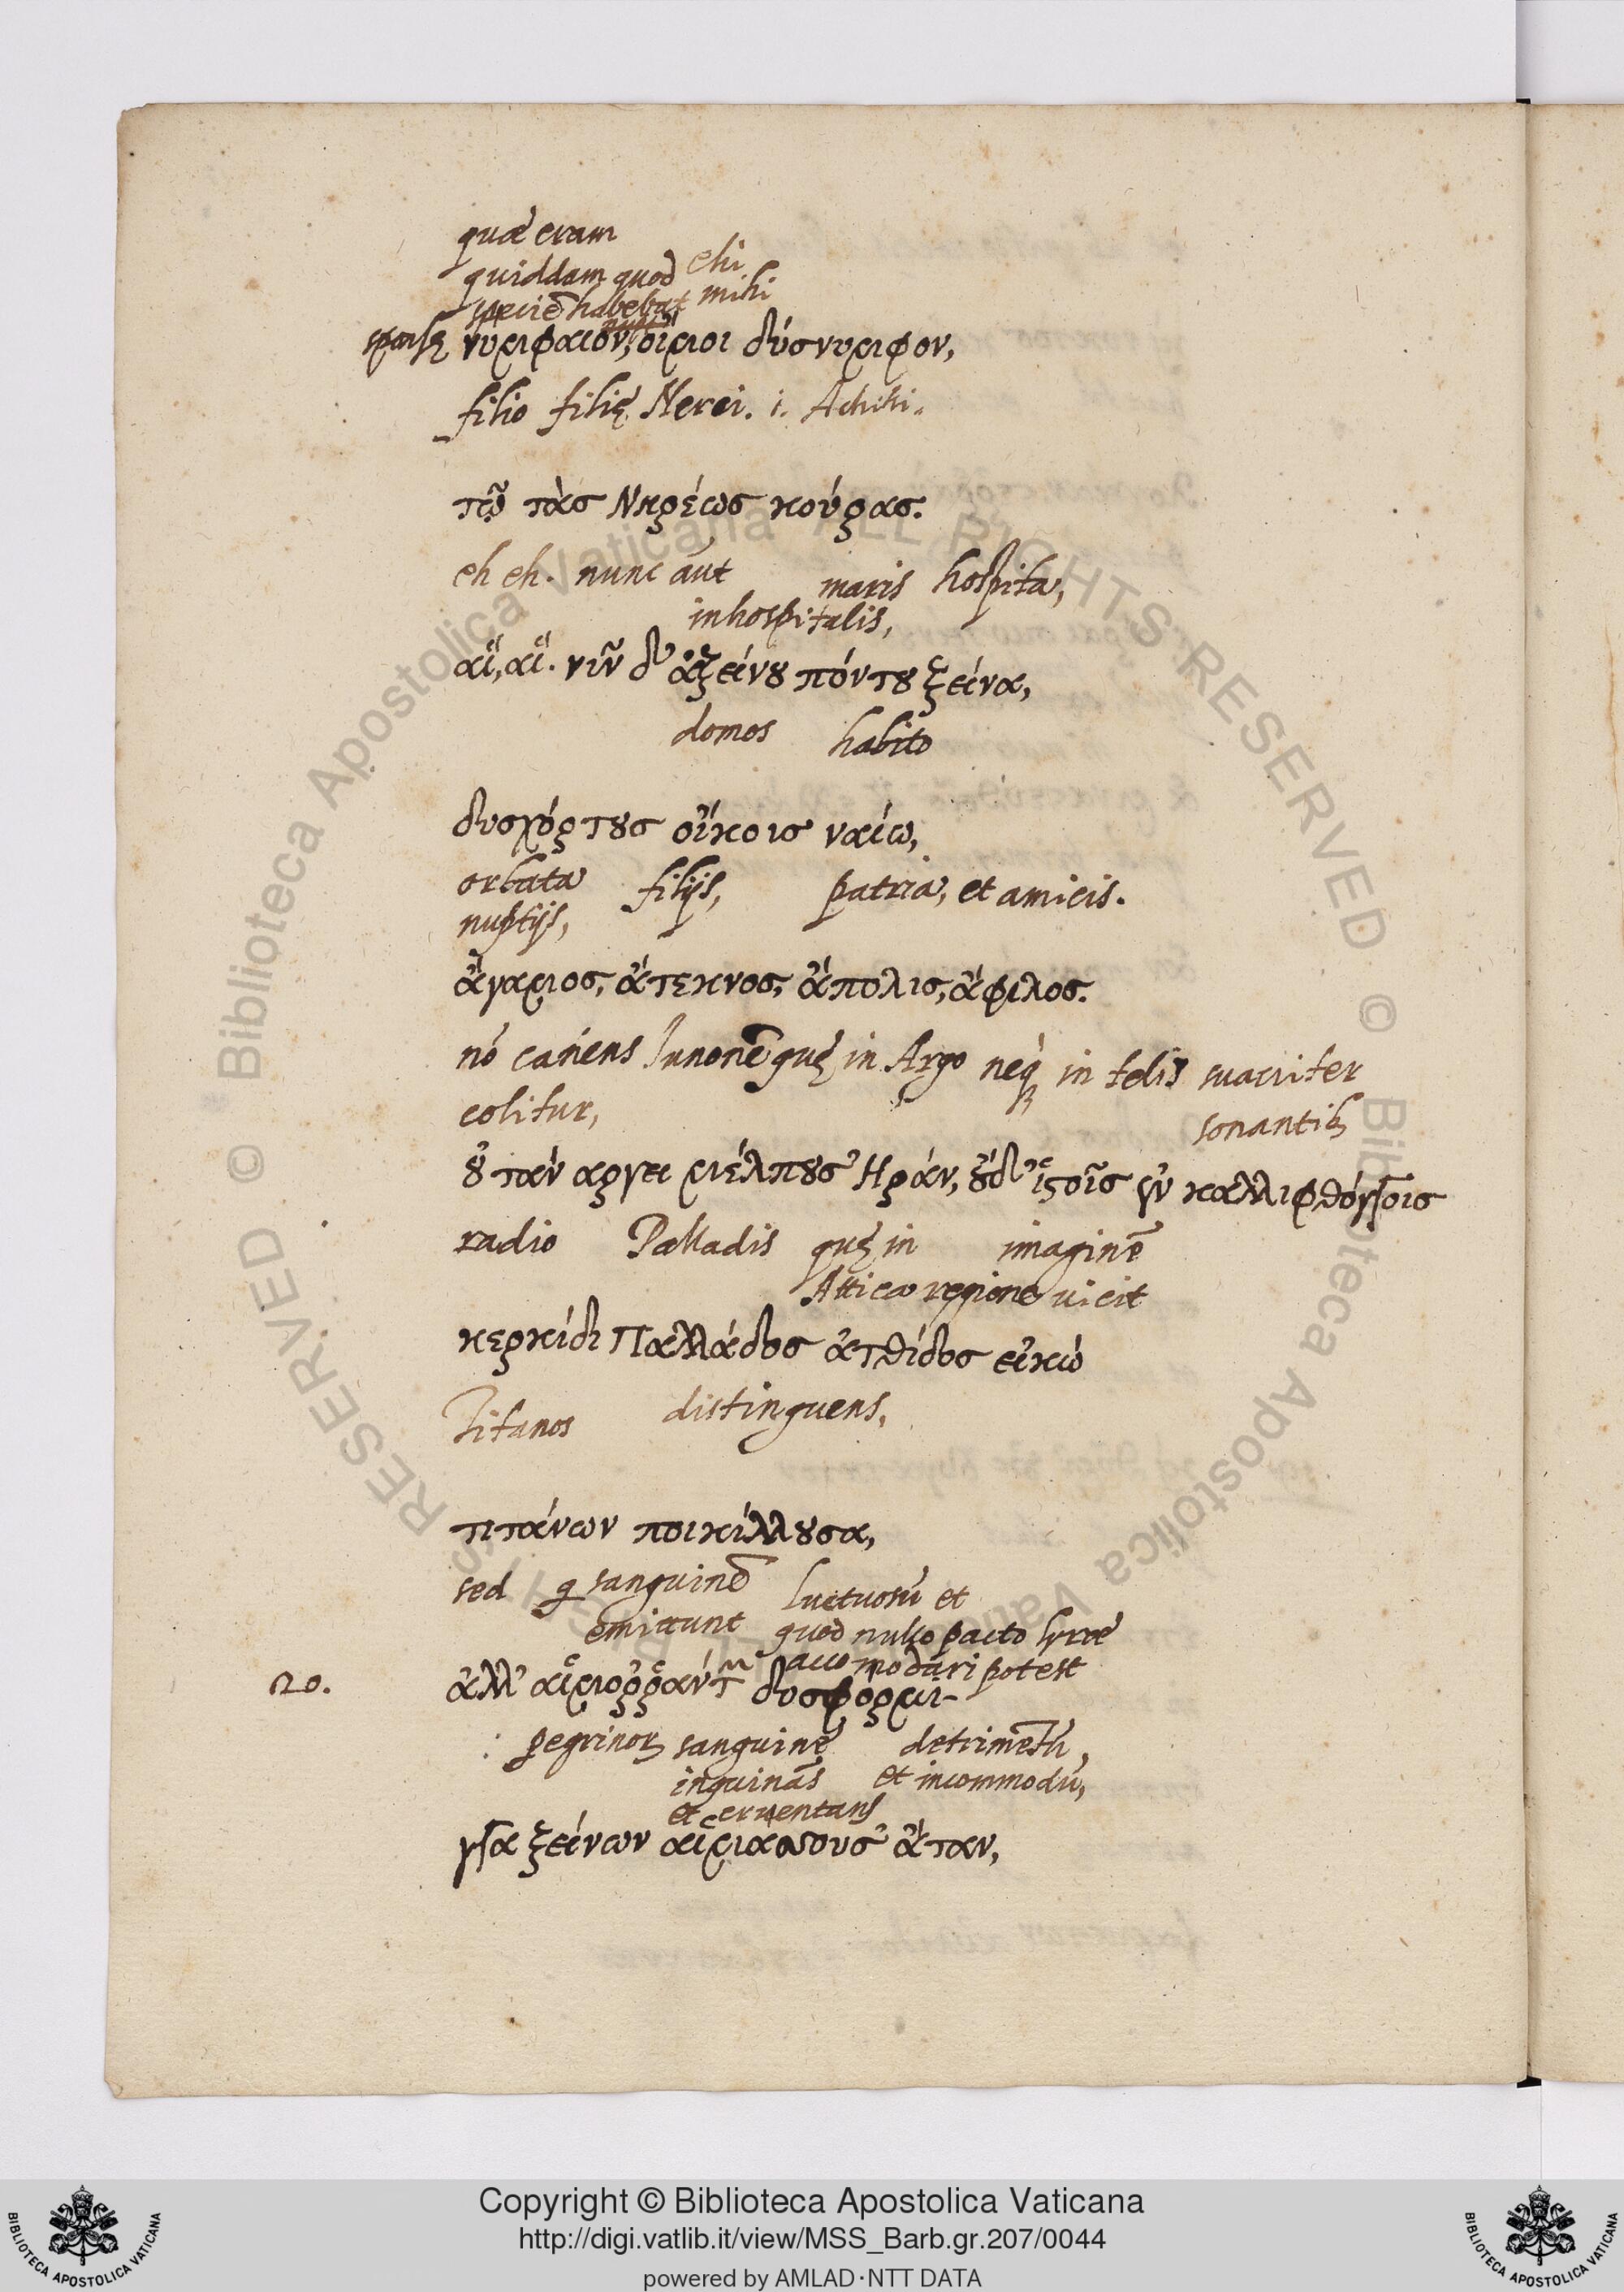 quæ eram
quiddam quod ehi
speciē habebat mihi
νυμφαῖον, οἴμοι δύσνυμφον,
filio filię Nerei. i. Achilli.
τῷ τᾶς Νηρέως κούρας.
eh eh. nunc aūt maris hospita,
inhospitalis,
αἴ, αἴ. νῦν δ' ἀξείνου πόντου ξείνα,
domos habito
δυσχόρτους οἴκοις ναίω,
orbata filijs, patria, et amicis.
nuptijs,
ἄγαμος, ἄτεκνος, ἄπολις, ἄφιλος.
nō canens Junonē quę in Argo neq; in telis suaviter
colitur, sonantib;
οὐ τὰν αργει μέλπουσ' Ηράν, οὐδ' ἱστοῖς ἐν καλλιφθόγγοις
radio Palladis quę in imaginē
Attica regione vicit
κερκίδι Παλλάδος ἀτθίδος εἰκὼ
Titanos distinguens,
τιτάνων ποικίλλουσα,
sed q sanguinē luctuosū et
emittunt quod nullo pacto lyræ
accomodari potest
20. ἀλλ' αἱμοῤῥάντων δυσφόρμι-
peregrinor; sanguine detrimētū,
inquinās et incommodū,
et cruentans
γγα ξείνων αἱμάσσουσ' ἄταν,
Copyright © Biblioteca Apostolica Vaticana
http://digi.vatlib.it/view/MSS_Barb.gr.207/0044
powered by AMLAD·NTT DATA